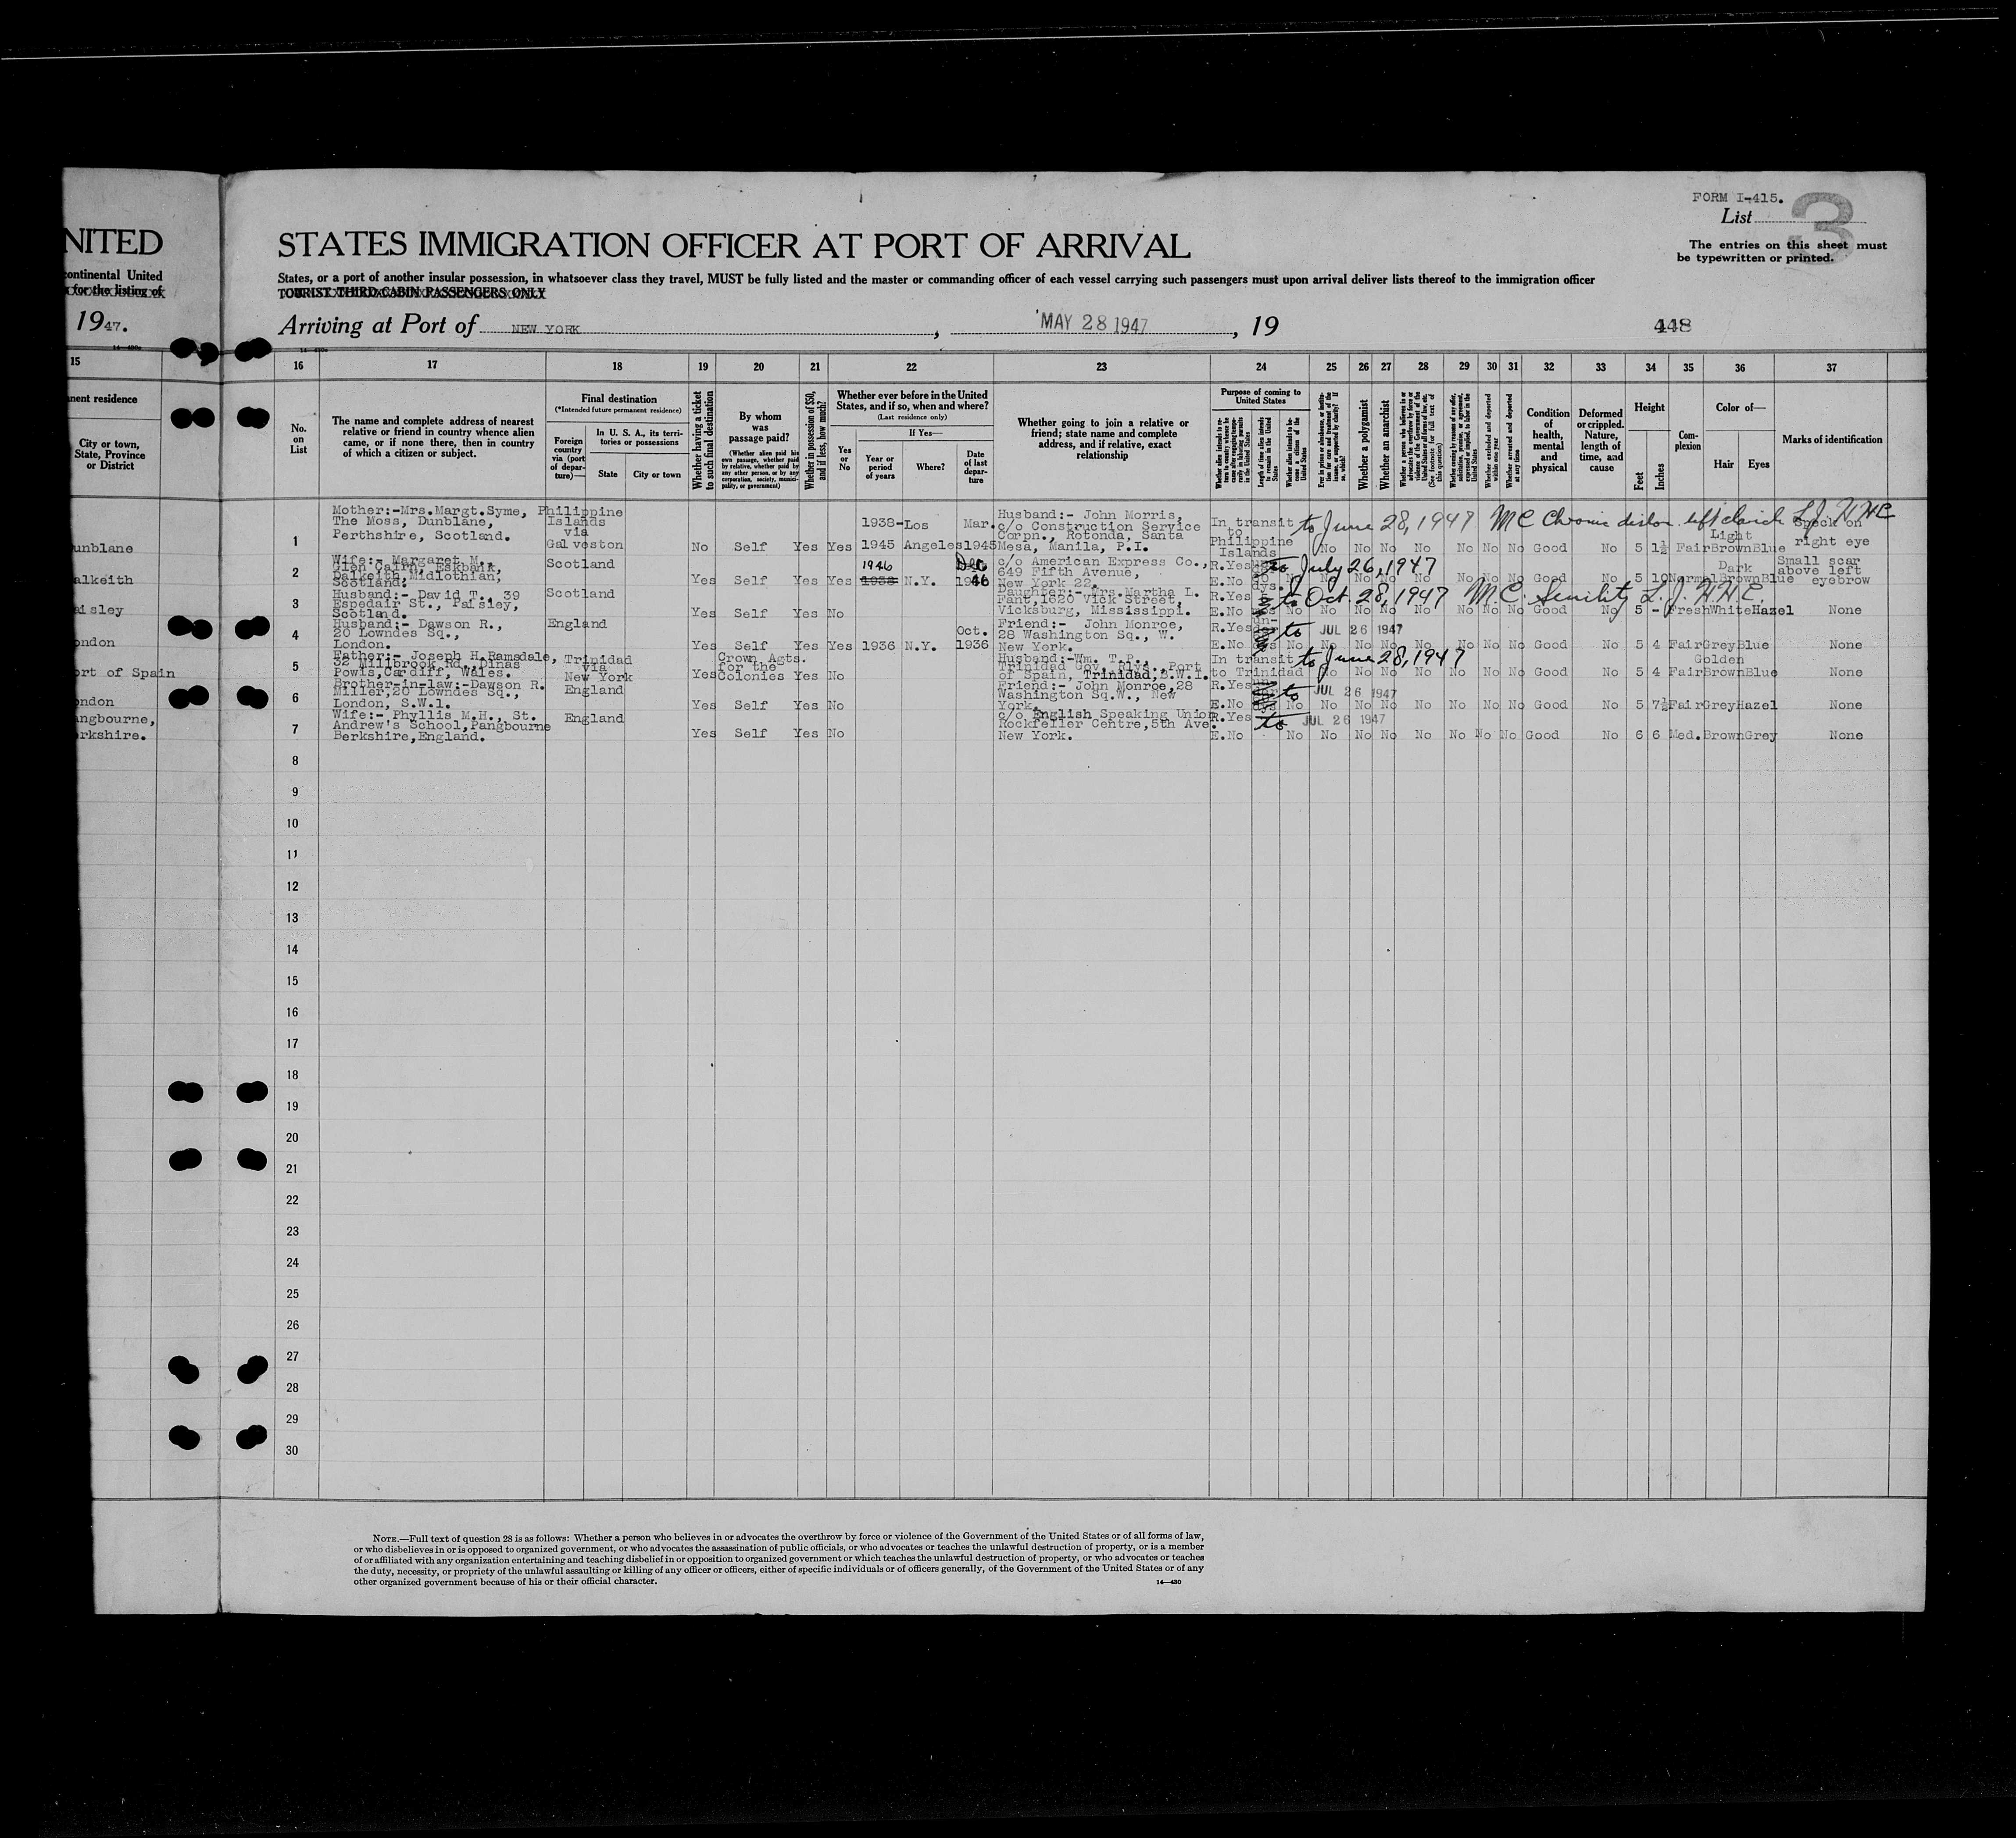 FORM I-415.
List 3
The entries on this sheet must
be typewritten or printed.
NITED
STATES IMMIGRATION OFFICER AT PORT OF ARRIVAL
ontinental United
x for the listing of
States, or a port of another insular possession, in whatsoever class they travel, MUST be fully listed and the master or commanding officer of each vessel carrying such passengers must upon arrival deliver lists thereof to the immigration officer
TOURIST THIRD CABIN PASSENGERS ONLY
1947.
Arriving at Port of NEW YORK, MAY 28 1947, 19
448
15 16 17 18 19 20 21 22 23 24 25 26 27 28 29 30 31 32 33 34 35 36 37
nent residence
City or town,
State, Province
or District
No.
on
List
The name and complete address of nearest
relative or friend in country whence alien
came, or if none there, then in country
of which a citizen or subject.
Final destination
(*Intended future permanent residence)
Foreign
country
via (port
of depar-
ture)—
In U. S. A., its terri-
tories or possessions
State City or town
Whether having a ticket
to such final destination
By whom
was
passage paid?
(Whether alien paid his
own passage, whether paid
by relative, whether paid by
any other person, or by any
corporation, society, munici-
pality, or government)
Whether in possession of $50,
and if less, how much?
Whether ever before in the United
States, and if so, when and where?
(Last residence only)
Yes
or
No
If Yes—
Year or
period
of years
Where?
Date
of last
depar-
ture
Whether going to join a relative or
friend; state name and complete
address, and if relative, exact
relationship
Purpose of coming to
United States
Length of time alien intends
to remain in the United
States
Whether a polygamist
Whether an anarchist
Whether excluded and deported
within one year
Whether arrested and deported
at any time
Condition
of
health,
mental
and
physical
Deformed
or crippled.
Nature,
length of
time, and
cause
Height
Feet Inches
Com-
plexion
Color of—
Hair Eyes
Marks of identification
unblane
1
Mother:-Mrs.Margt.Syme,
The Moss, Dunblane,
Perthshire, Scotland.
Philippine
Islands
via
Galveston
No Self Yes Yes
1938-
1945
Los
Angeles
Mar.
1945
Husband:- John Morris,
c/o Construction Service
Corpn., Rotonda, Santa
Mesa, Manila, P.I.
In transit
to
Philippine
Islands
to June 28, 1947 MC Chronic
No No No No No No No Good No 5 1½ Fair
Light
Brown Blue
right eye
alkeith
2
Wife:- Margaret M.,
Glen Cairn, Eskbank,
Dalkeith, Midlothian,
Scotland.
Scotland
Yes Self Yes Yes
1946
1938
N.Y.
Dec
1946
c/o American Express Co.,
649 Fifth Avenue,
New York 22.
R.Yes
E.No
to July 26, 1947
No No No No No No No Good No 5 10 Normal
Dark
Brown Blue
Small scar
above left
eyebrow
aisley
3
Husband:- David T., 39
Espedair St., Paisley,
Scotland.
Scotland
Yes Self Yes No
Daughter:- Mrs.Martha L.
Fant,1620 Vick Street,
Vicksburg, Mississippi.
R.Yes
E.No
to Oct. 28, 1947 MC. Senility L. J. H.H.C.
No No No No No No No No Good No 5 - Fresh White Hazel None
ondon
4
Husband:- Dawson R.,
20 Lowndes Sq.,
London.
England
Yes Self Yes Yes 1936 N.Y.
Oct.
1936
Friend:- John Monroe,
28 Washington Sq., W.
New York.
R.Yes
E.No
to JUL 26 1947
No No No No No No No No Good No 5 4 Fair Grey Blue None
ort of Spain
5
Father:- Joseph H.Ramsdale,
32 Millbrook Rd.,Dinas
Powis,Cardiff, Wales.
Trinidad
via
New York
Yes
Crown Agts.
for the
Colonies
Yes No
Husband:-Wm. T.P.,
Trinidad Gov. Rlys.,Port
of Spain, Trinidad,B.W.I.
In transit
to Trinidad
to June 28, 1947
No No No No No No No Good No 5 4 Fair
Golden
Brown Blue
None
ondon
6
Brother-in-law:-Dawson R.
Miller,20 Lowndes Sq.,
London, S.W.1.
England
Yes Self Yes No
Friend:- John Monroe,28
Washington Sq.W., New
York.
R.Yes
E.No
to JUL 26 1947
No No No No No No No No Good No 5 7½ Fair Grey Hazel None
angbourne,
erkshire.
7
Wife:- Phyllis M.H., St.
Andrew's School,Pangbourne
Berkshire,England.
England
Yes Self Yes No
c/o English Speaking Union
Rockfeller Centre,5th Ave.
New York.
R.Yes
E.No
to JUL 26 1947
No No No No No No No No Good No 6 6 Med. Brown Grey None
8
9
10
11
12
13
14
15
16
17
18
19
20
21
22
23
24
25
26
27
28
29
30
NOTE.—Full text of question 28 is as follows: Whether a person who believes in or advocates the overthrow by force or violence of the Government of the United States or of all forms of law,
or who disbelieves in or is opposed to organized government, or who advocates the assassination of public officials, or who advocates or teaches the unlawful destruction of property, or is a member
of or affiliated with any organization entertaining and teaching disbelief in or opposition to organized government or which teaches the unlawful destruction of property, or who advocates or teaches
the duty, necessity, or propriety of the unlawful assaulting or killing of any officer or officers, either of specific individuals or of officers generally, of the Government of the United States or of any
other organized government because of his or their official character.
14—430